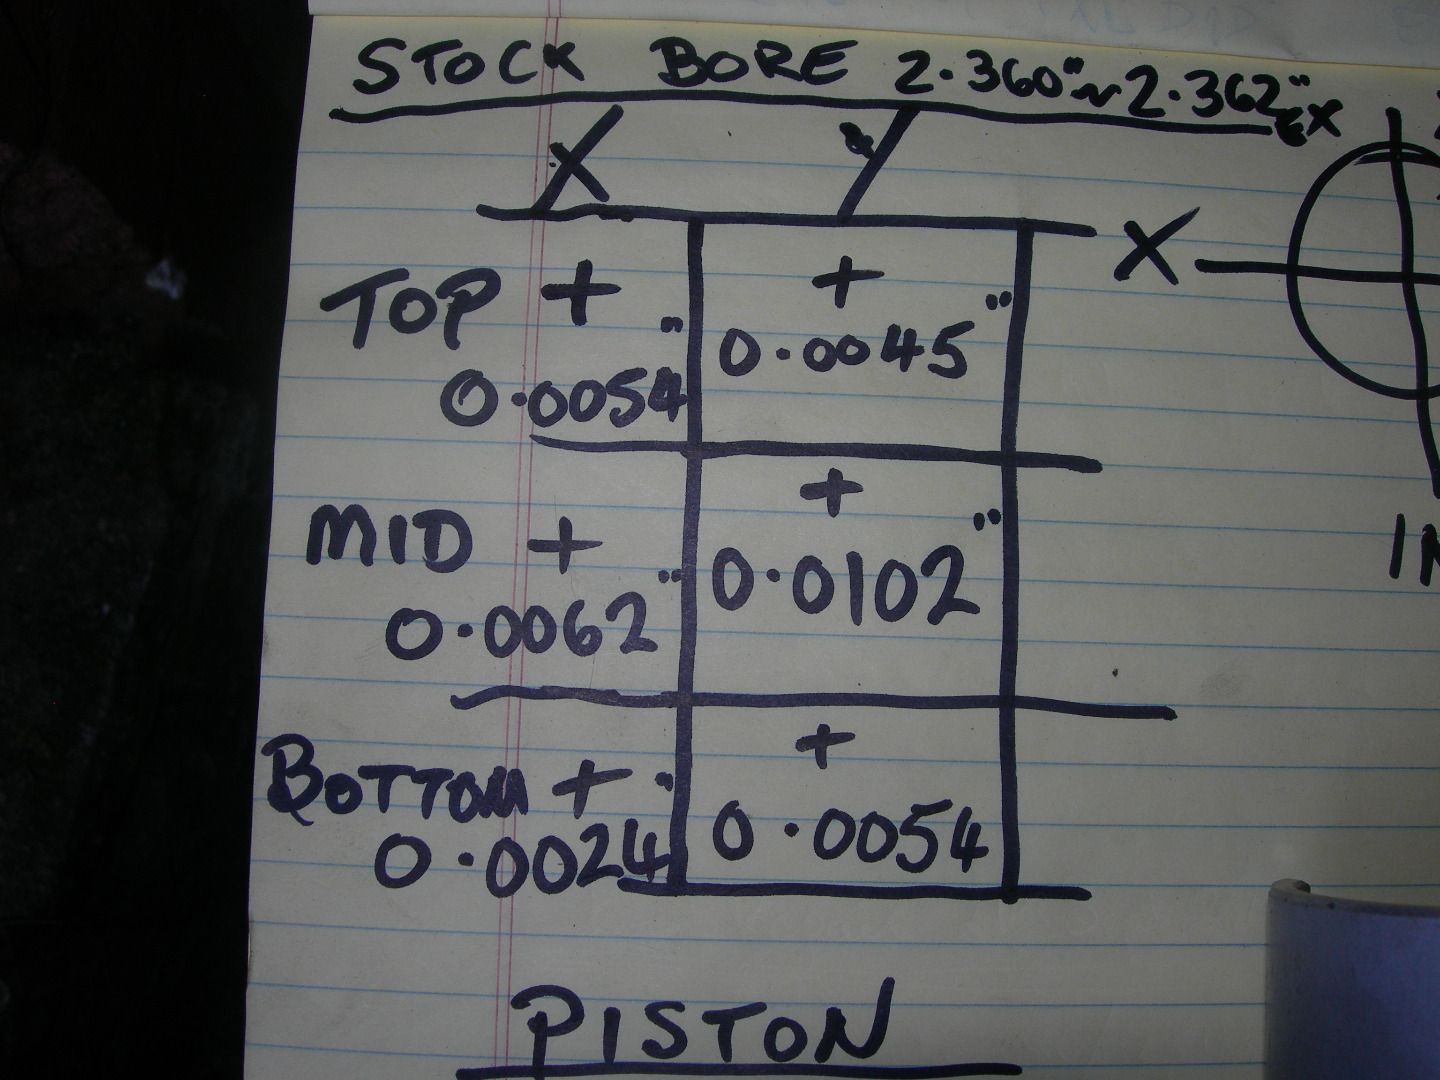 STOCK BORE 2.360"~2.362"
EX
X Y
TOP + +
0.0054" 0.0045"
X
MID + +
0.0062" 0.0102"
BOTTOM + +
0.0024" 0.0054
PISTON